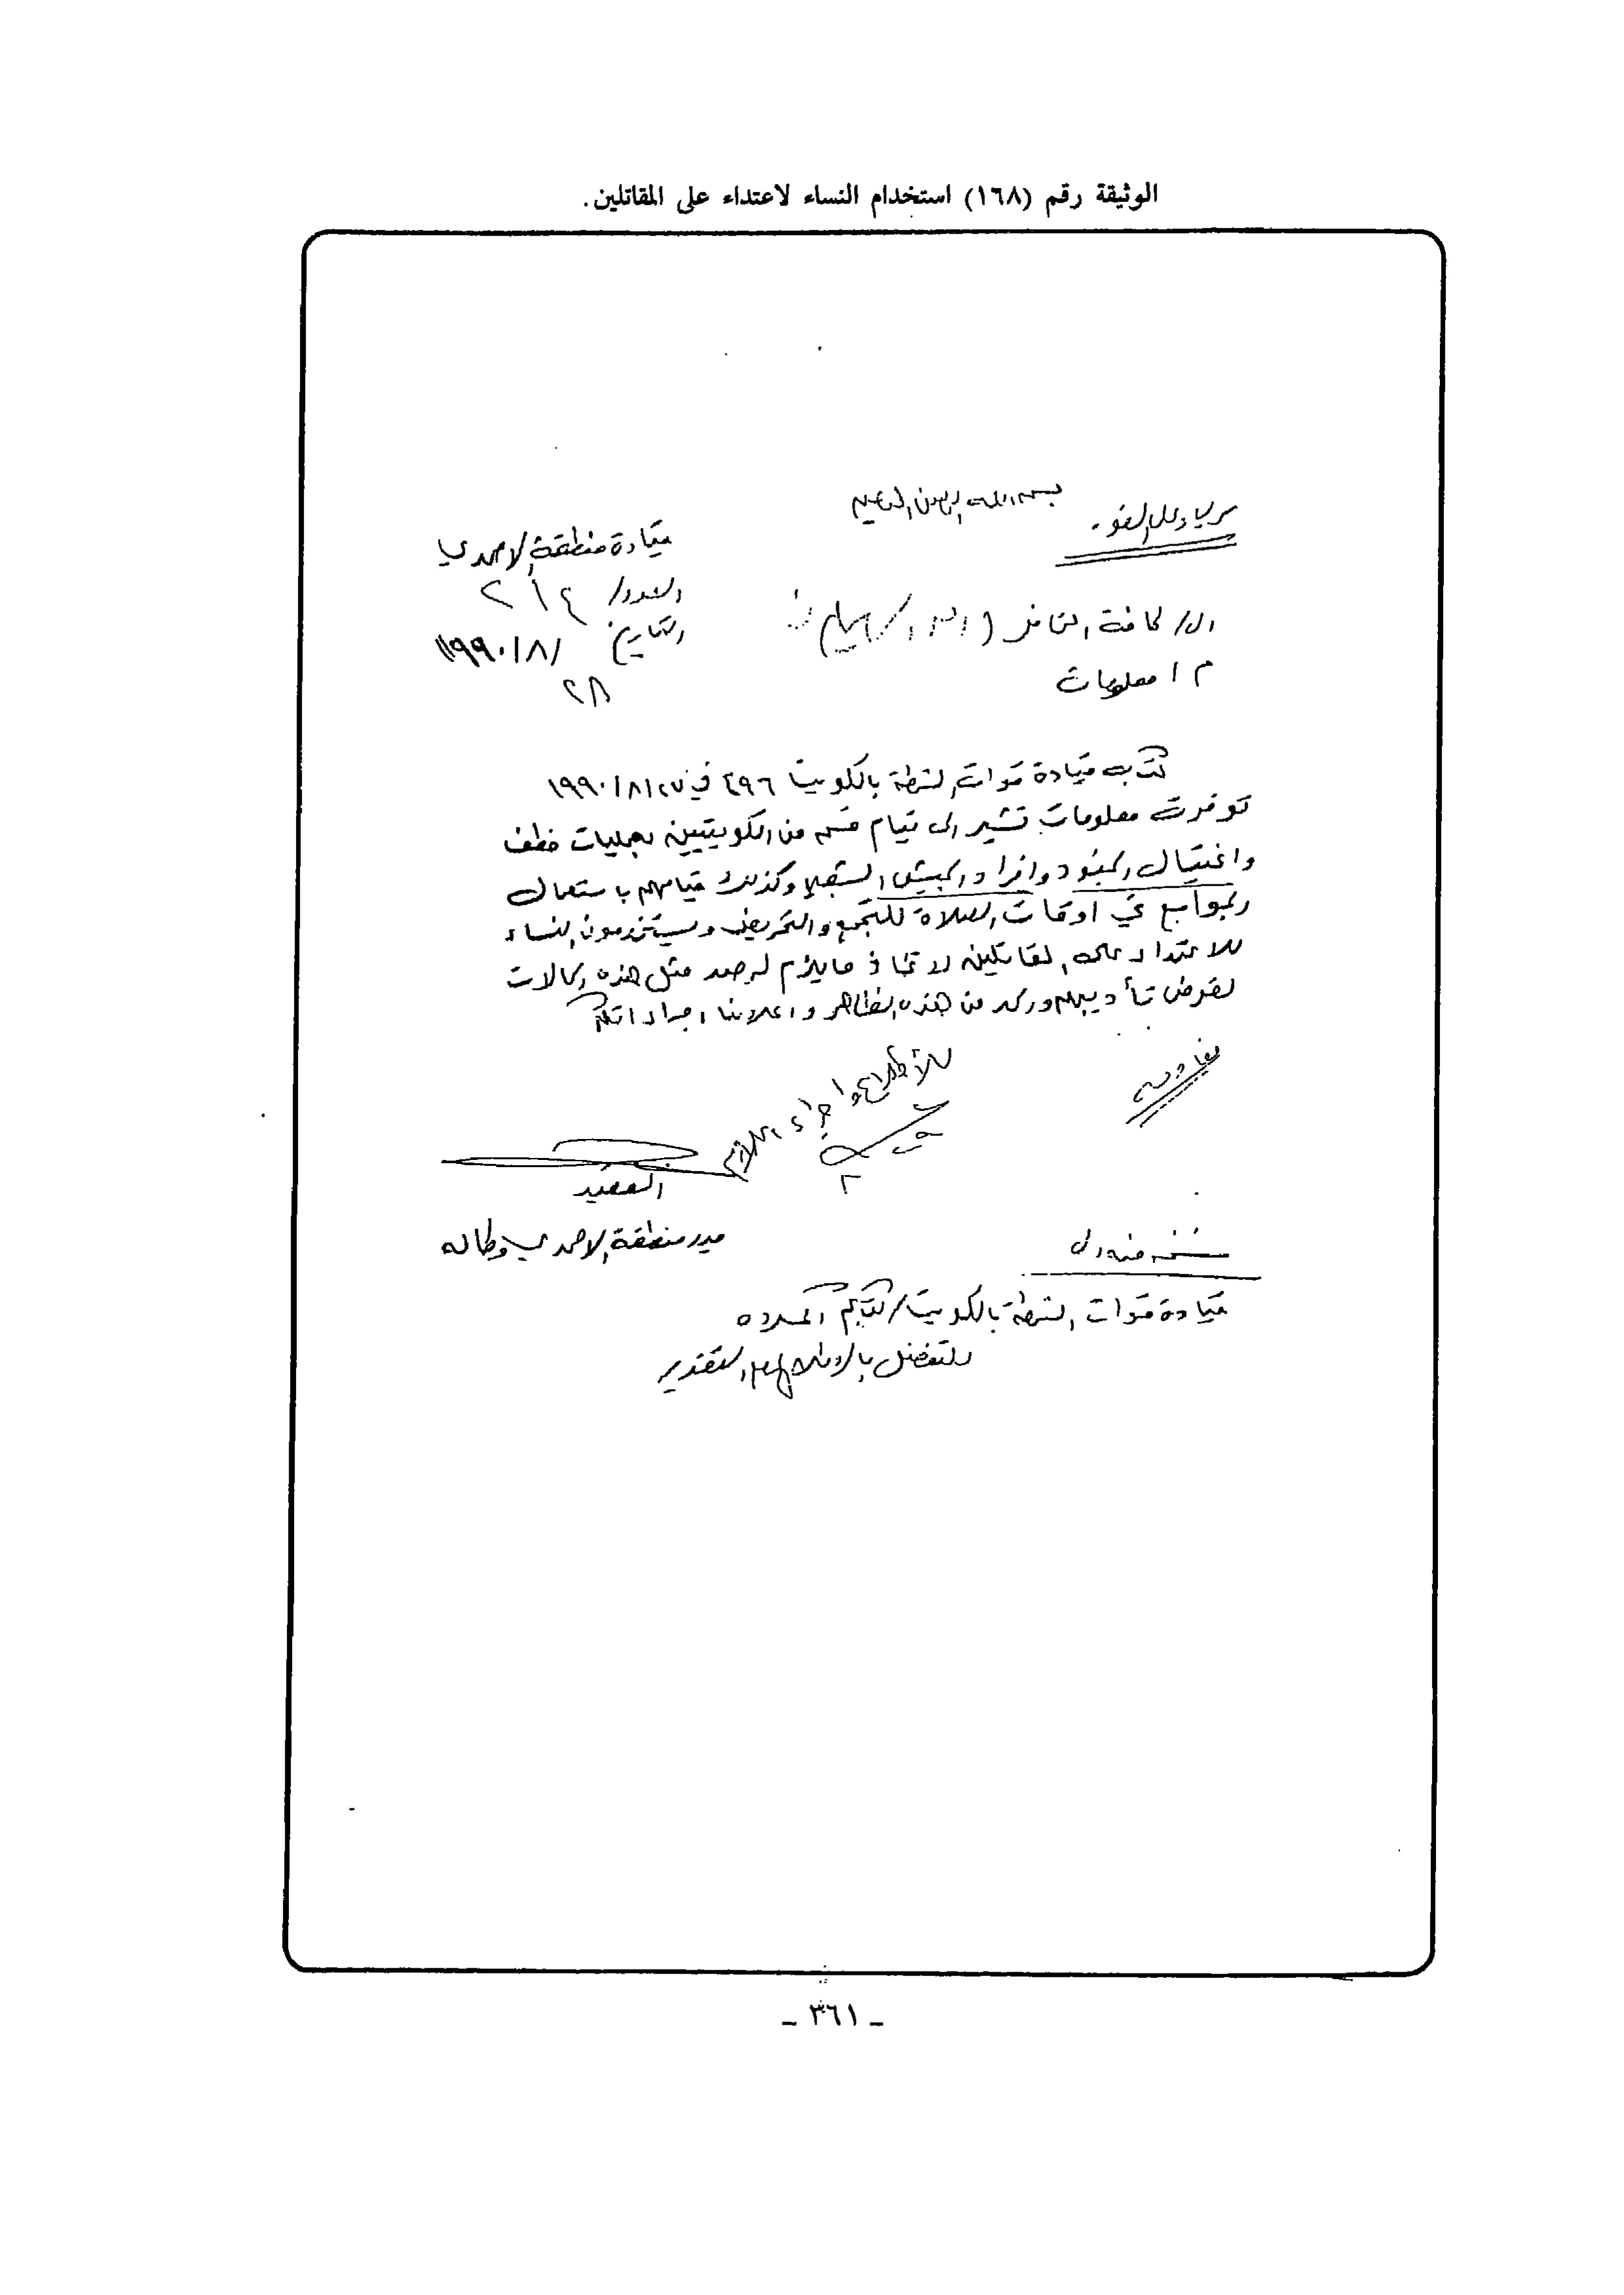 الوثيقة رقم (١٦٨) استخدام النساء لاعتداء على المقاتلين.
بسم الله الرحمن الرحيم
سري وعلى الفور
قيادة منطقة الاحمدي
العدد/ ٢١٤
التاريخ ٢٨/٨/١٩٩٠
الى/ كافة المخافر
م/ معلومات
كتاب قيادة قوات الشرطة بالكويت ٤٩٦ في ٢٧/٨/١٩٩٠
توفرت معلومات تشير الى قيام قسم من الكويتيين بعمليات خطف
واغتيال الجنود وافراد الجيش الشعبي وكذلك قيامهم باستعمال
الجوامع في اوقات الصلاة للتجمع والتحريض وسيستخدمون النساء
للاعتداء على المقاتلين لاتخاذ مايلزم لرصد مثل هذه الحالات
لغرض تأديبهم والحد من هذه المظاهر واعلامنا اجراءاتكم
للأطلاع واجراء اللازم
العقيد
مدير منطقة الاحمدي وكالة
نسخه منه الى
قيادة قوات الشرطة بالكويت/ كتابكم اعلاه
للتفضل بالاطلاع مع التقدير
ـ ٣٦١ ـ